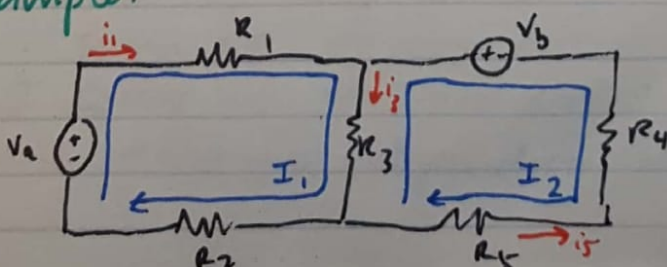 i1 R1 Vb
+ -
i3
Va + - R3 R4
I1 I2
R2 R5 i5